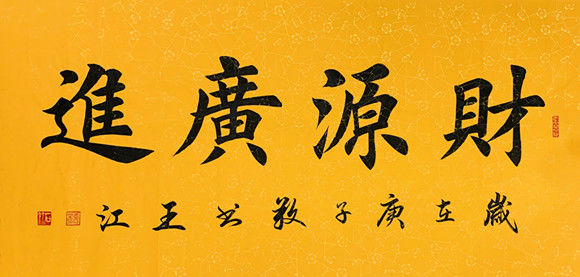 財源廣進
歲在庚子敬书王江